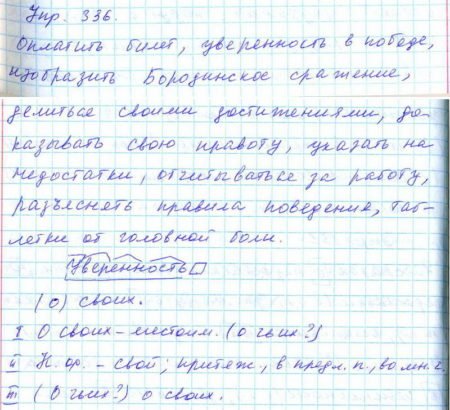 Упр. 336.
Оплатить билет, уверенность в победе,
изобразить Бородинское сражение,
делиться своими достижениями, до-
казывать свою правоту, указать на
недостатки, отчитываться за работу,
разъяснять правила поведения, таб-
летки от головной боли.
Уверенность
(о) своих.
I О своих – местоим. (о чьих?)
II Н. ф. – свой; притяж., в предл. п., во мн. ч.
III (О чьих?) о своих.